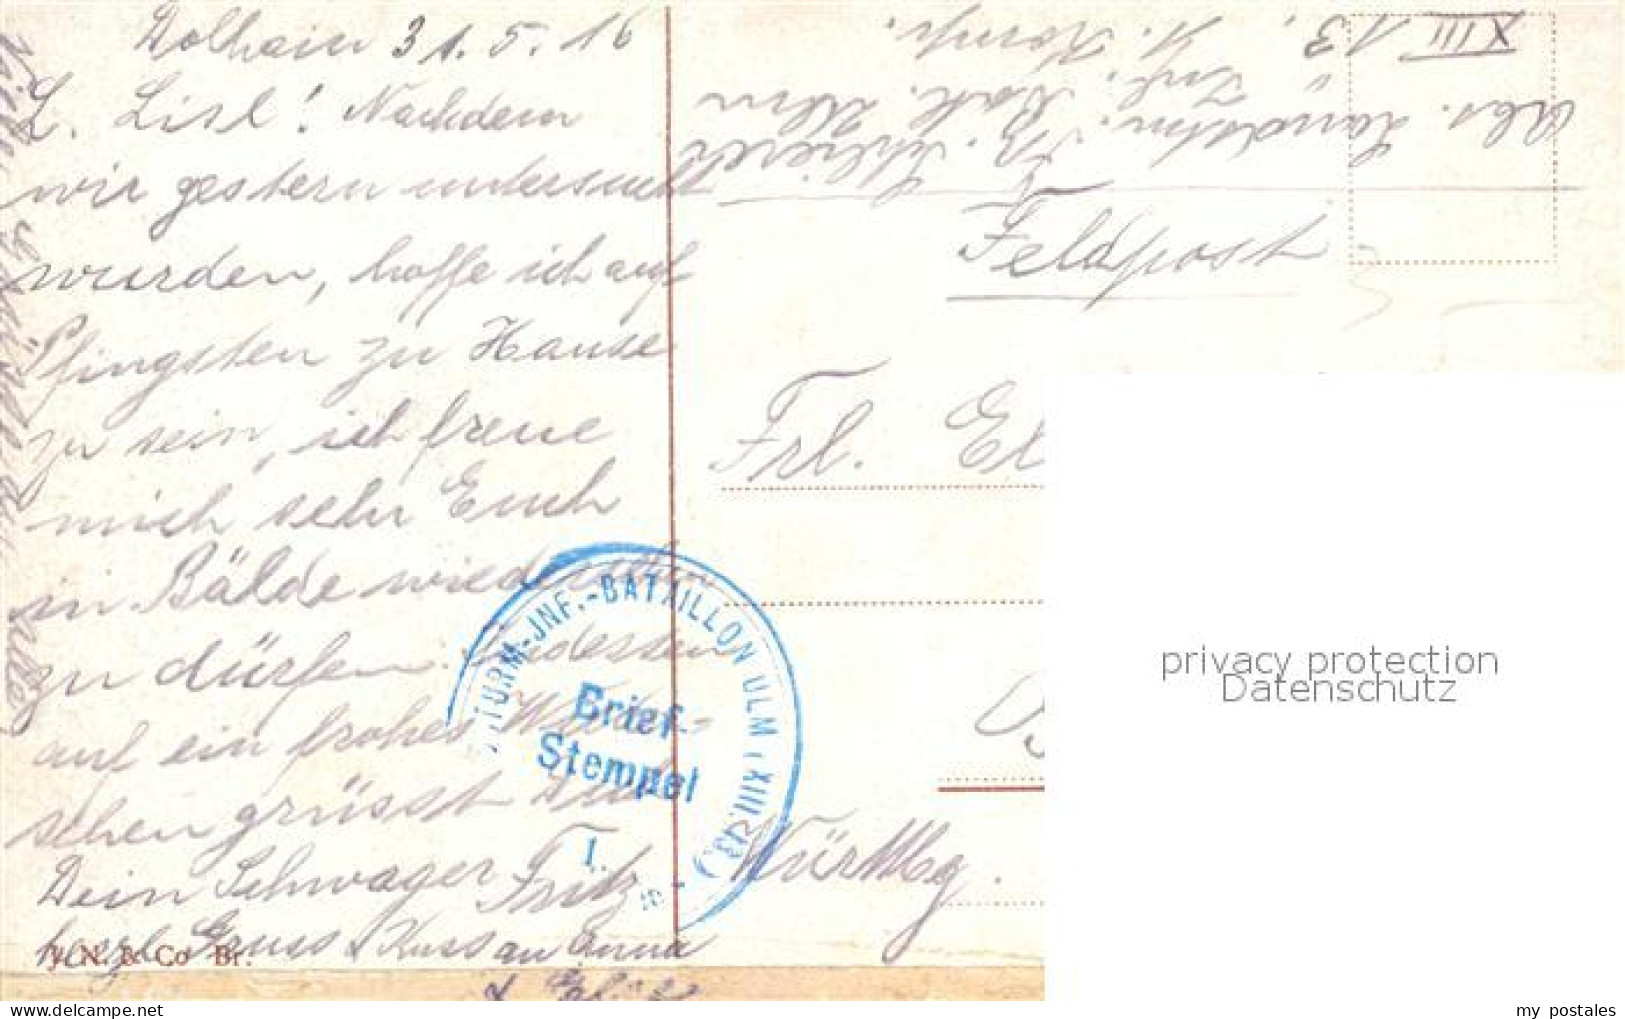 Dolhain 31.5.16
L. Lisl! Nachdem
wir gestern untersucht
wurden, hoffe ich auf
Pfingsten zu Hause
zu sein, ich freue
mich sehr Euch
in Bälde wiedersehen
zu dürfen. Indessen
auf ein frohes
schen grüsst Dich
Dein Schwager Fritz
herzl. Gruss & Kuss an Emma
&
N. & Co Br.
Abs. Landstm. Fr.
Inf. Bat. Ulm
XIII 13, 4. Komp.
Feldpost
Frl. El
Württbg.
STURM-JNF.-BATAILLON ULM (XIII.13.)
Brief-
Stempel
1.
privacy protection
Datenschutz
my postales
www.delcampe.net